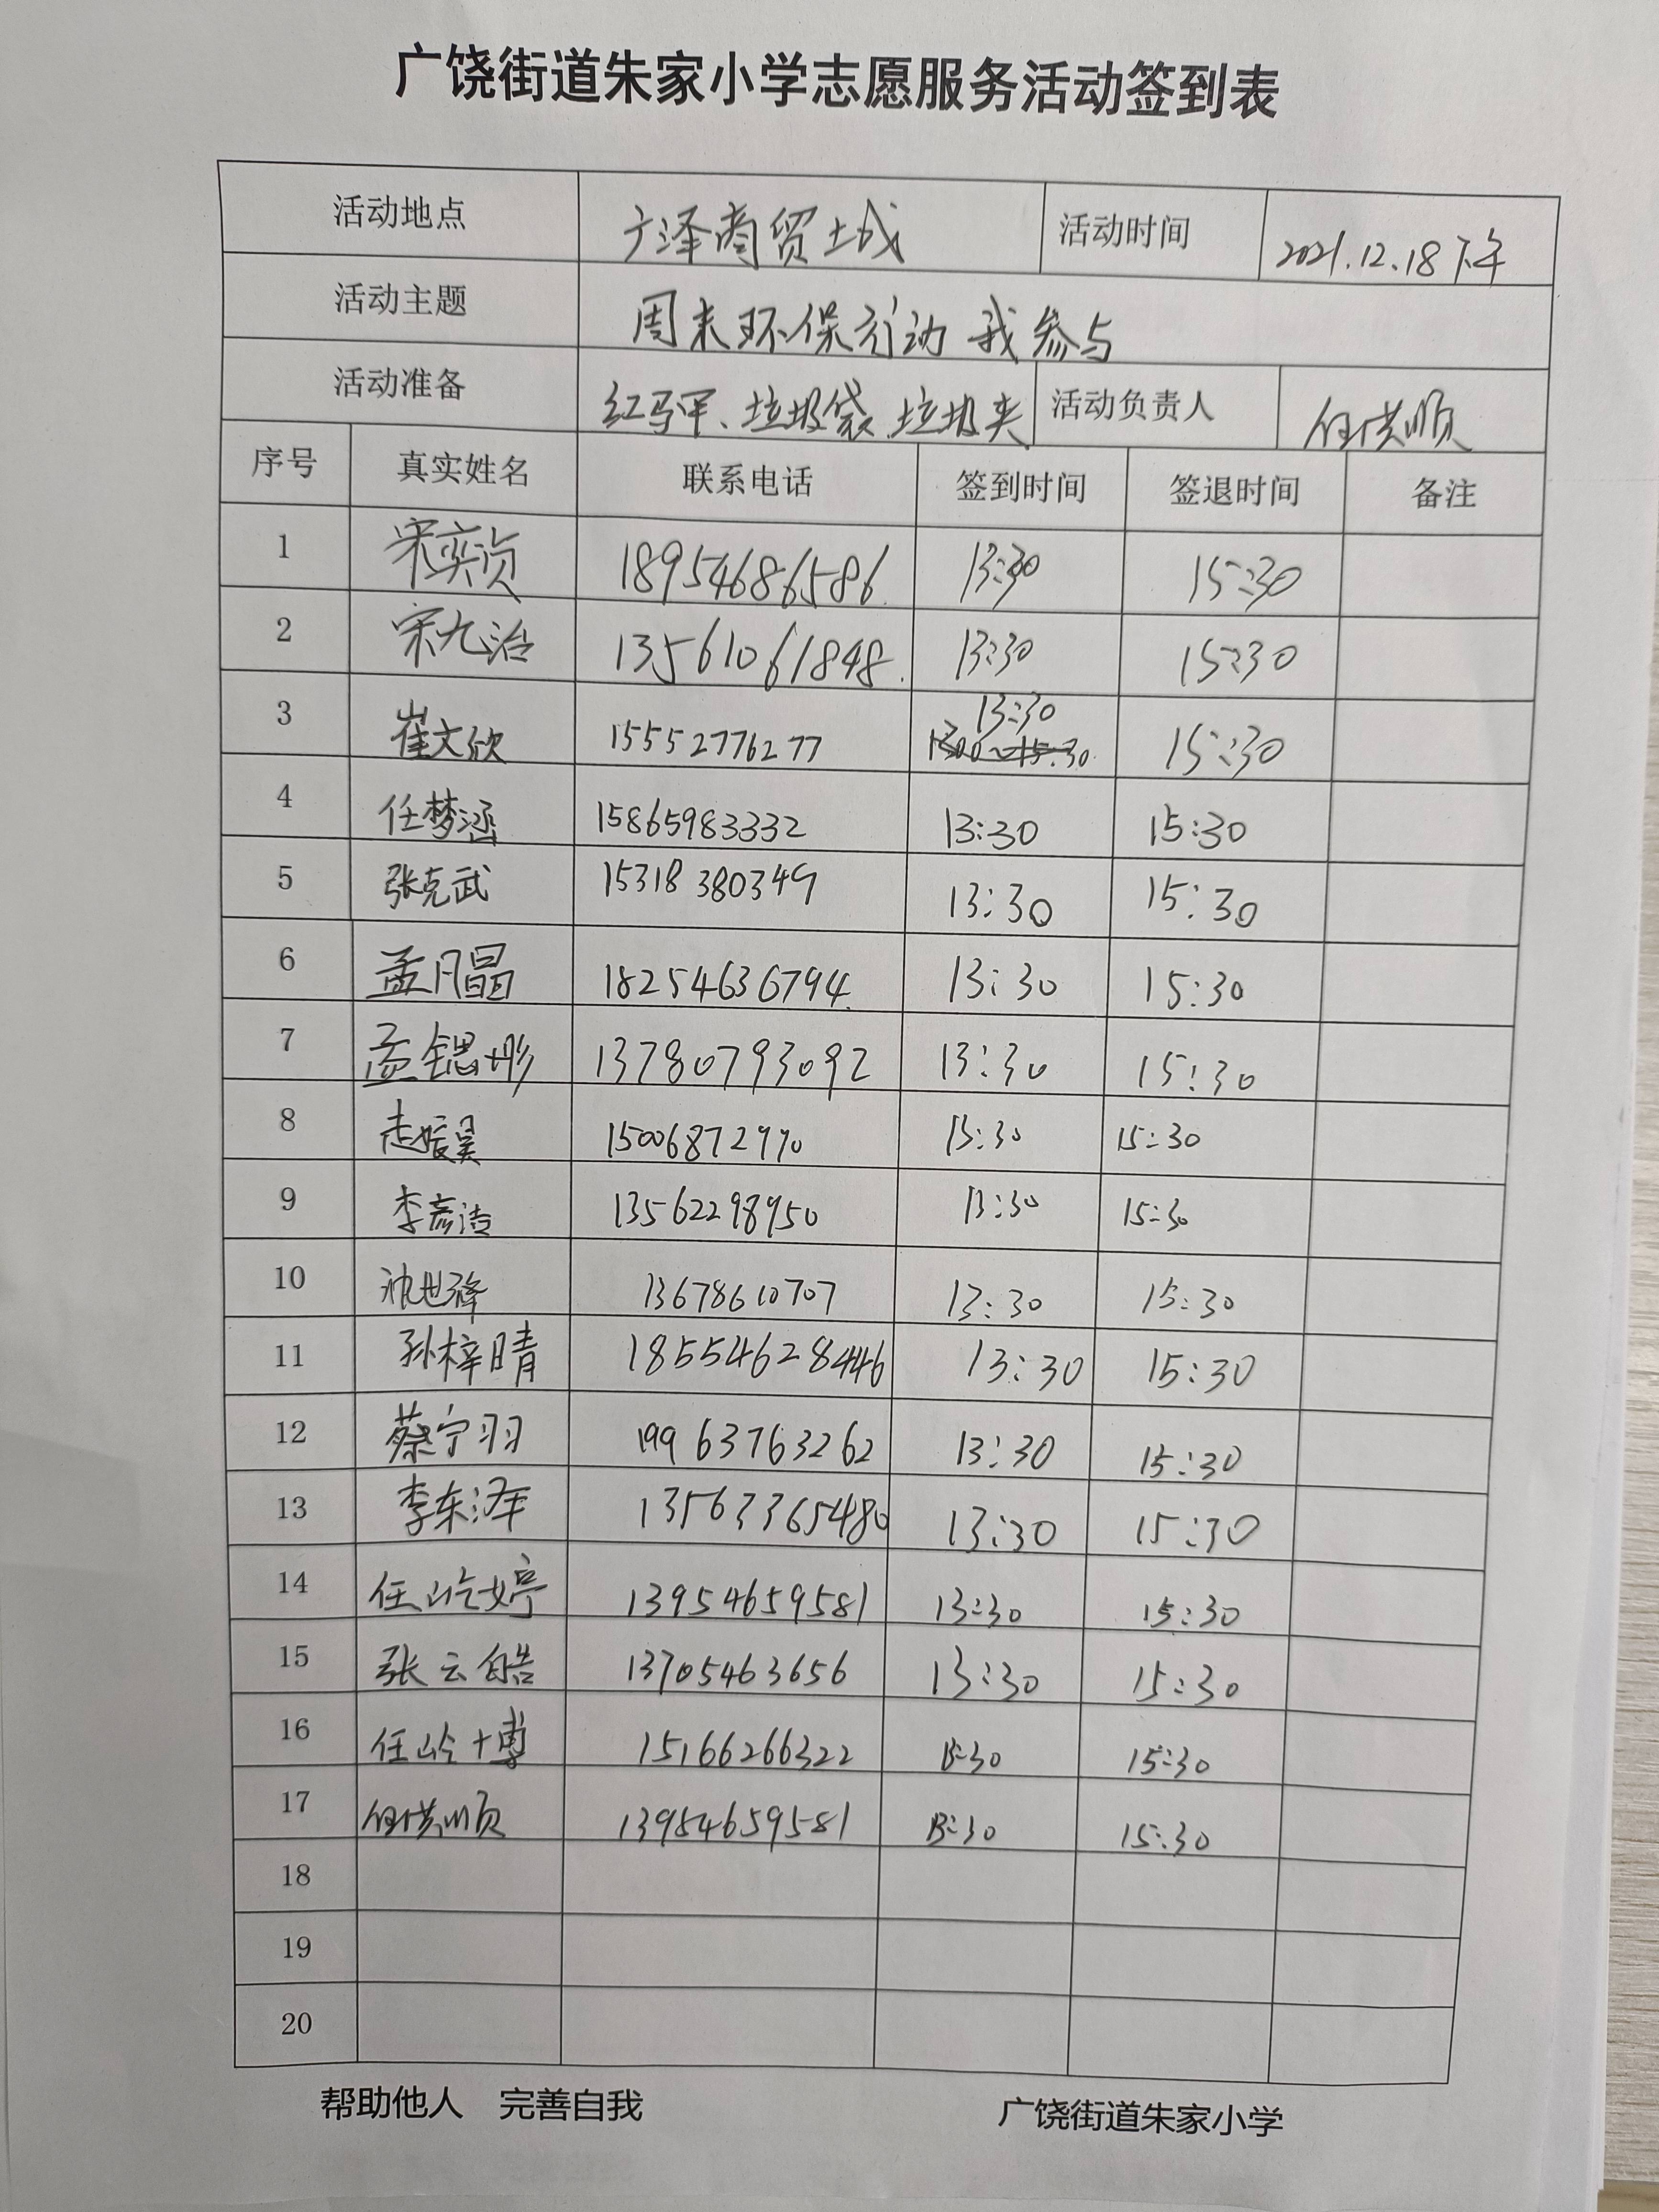 广饶街道朱家小学志愿服务活动签到表
活动地点 广泽商贸城 活动时间 2021.12.18下午
活动主题 周末环保行动 我参与
活动准备 红马甲、垃圾袋、垃圾夹 活动负责人 任洪顺
序号 真实姓名 联系电话 签到时间 签退时间 备注
1 宋奕贞 18954686586 13:30 15:30
2 宋九治 13561061848 13:30 15:30
3 崔文欣 15552776277 13:30 15:30
4 任梦涵 15865983332 13:30 15:30
5 张克武 15318380349 13:30 15:30
6 孟凡晶 18254636794 13:30 15:30
7 孟锶彤 13780793092 13:30 15:30
8 15006872990 13:30 15:30
9 李彦洁 13562298950 13:30 15:30
10 13678610707 13:30 15:30
11 孙梓晴 18554628446 13:30 15:30
12 蔡宁羽 19963763262 13:30 15:30
13 李东泽 13563365480 13:30 15:30
14 任屹婷 13954659581 13:30 15:30
15 张云皓 13705463656 13:30 15:30
16 15166266322 13:30 15:30
17 任洪顺 13954659581 13:30 15:30
18
19
20
帮助他人 完善自我 广饶街道朱家小学